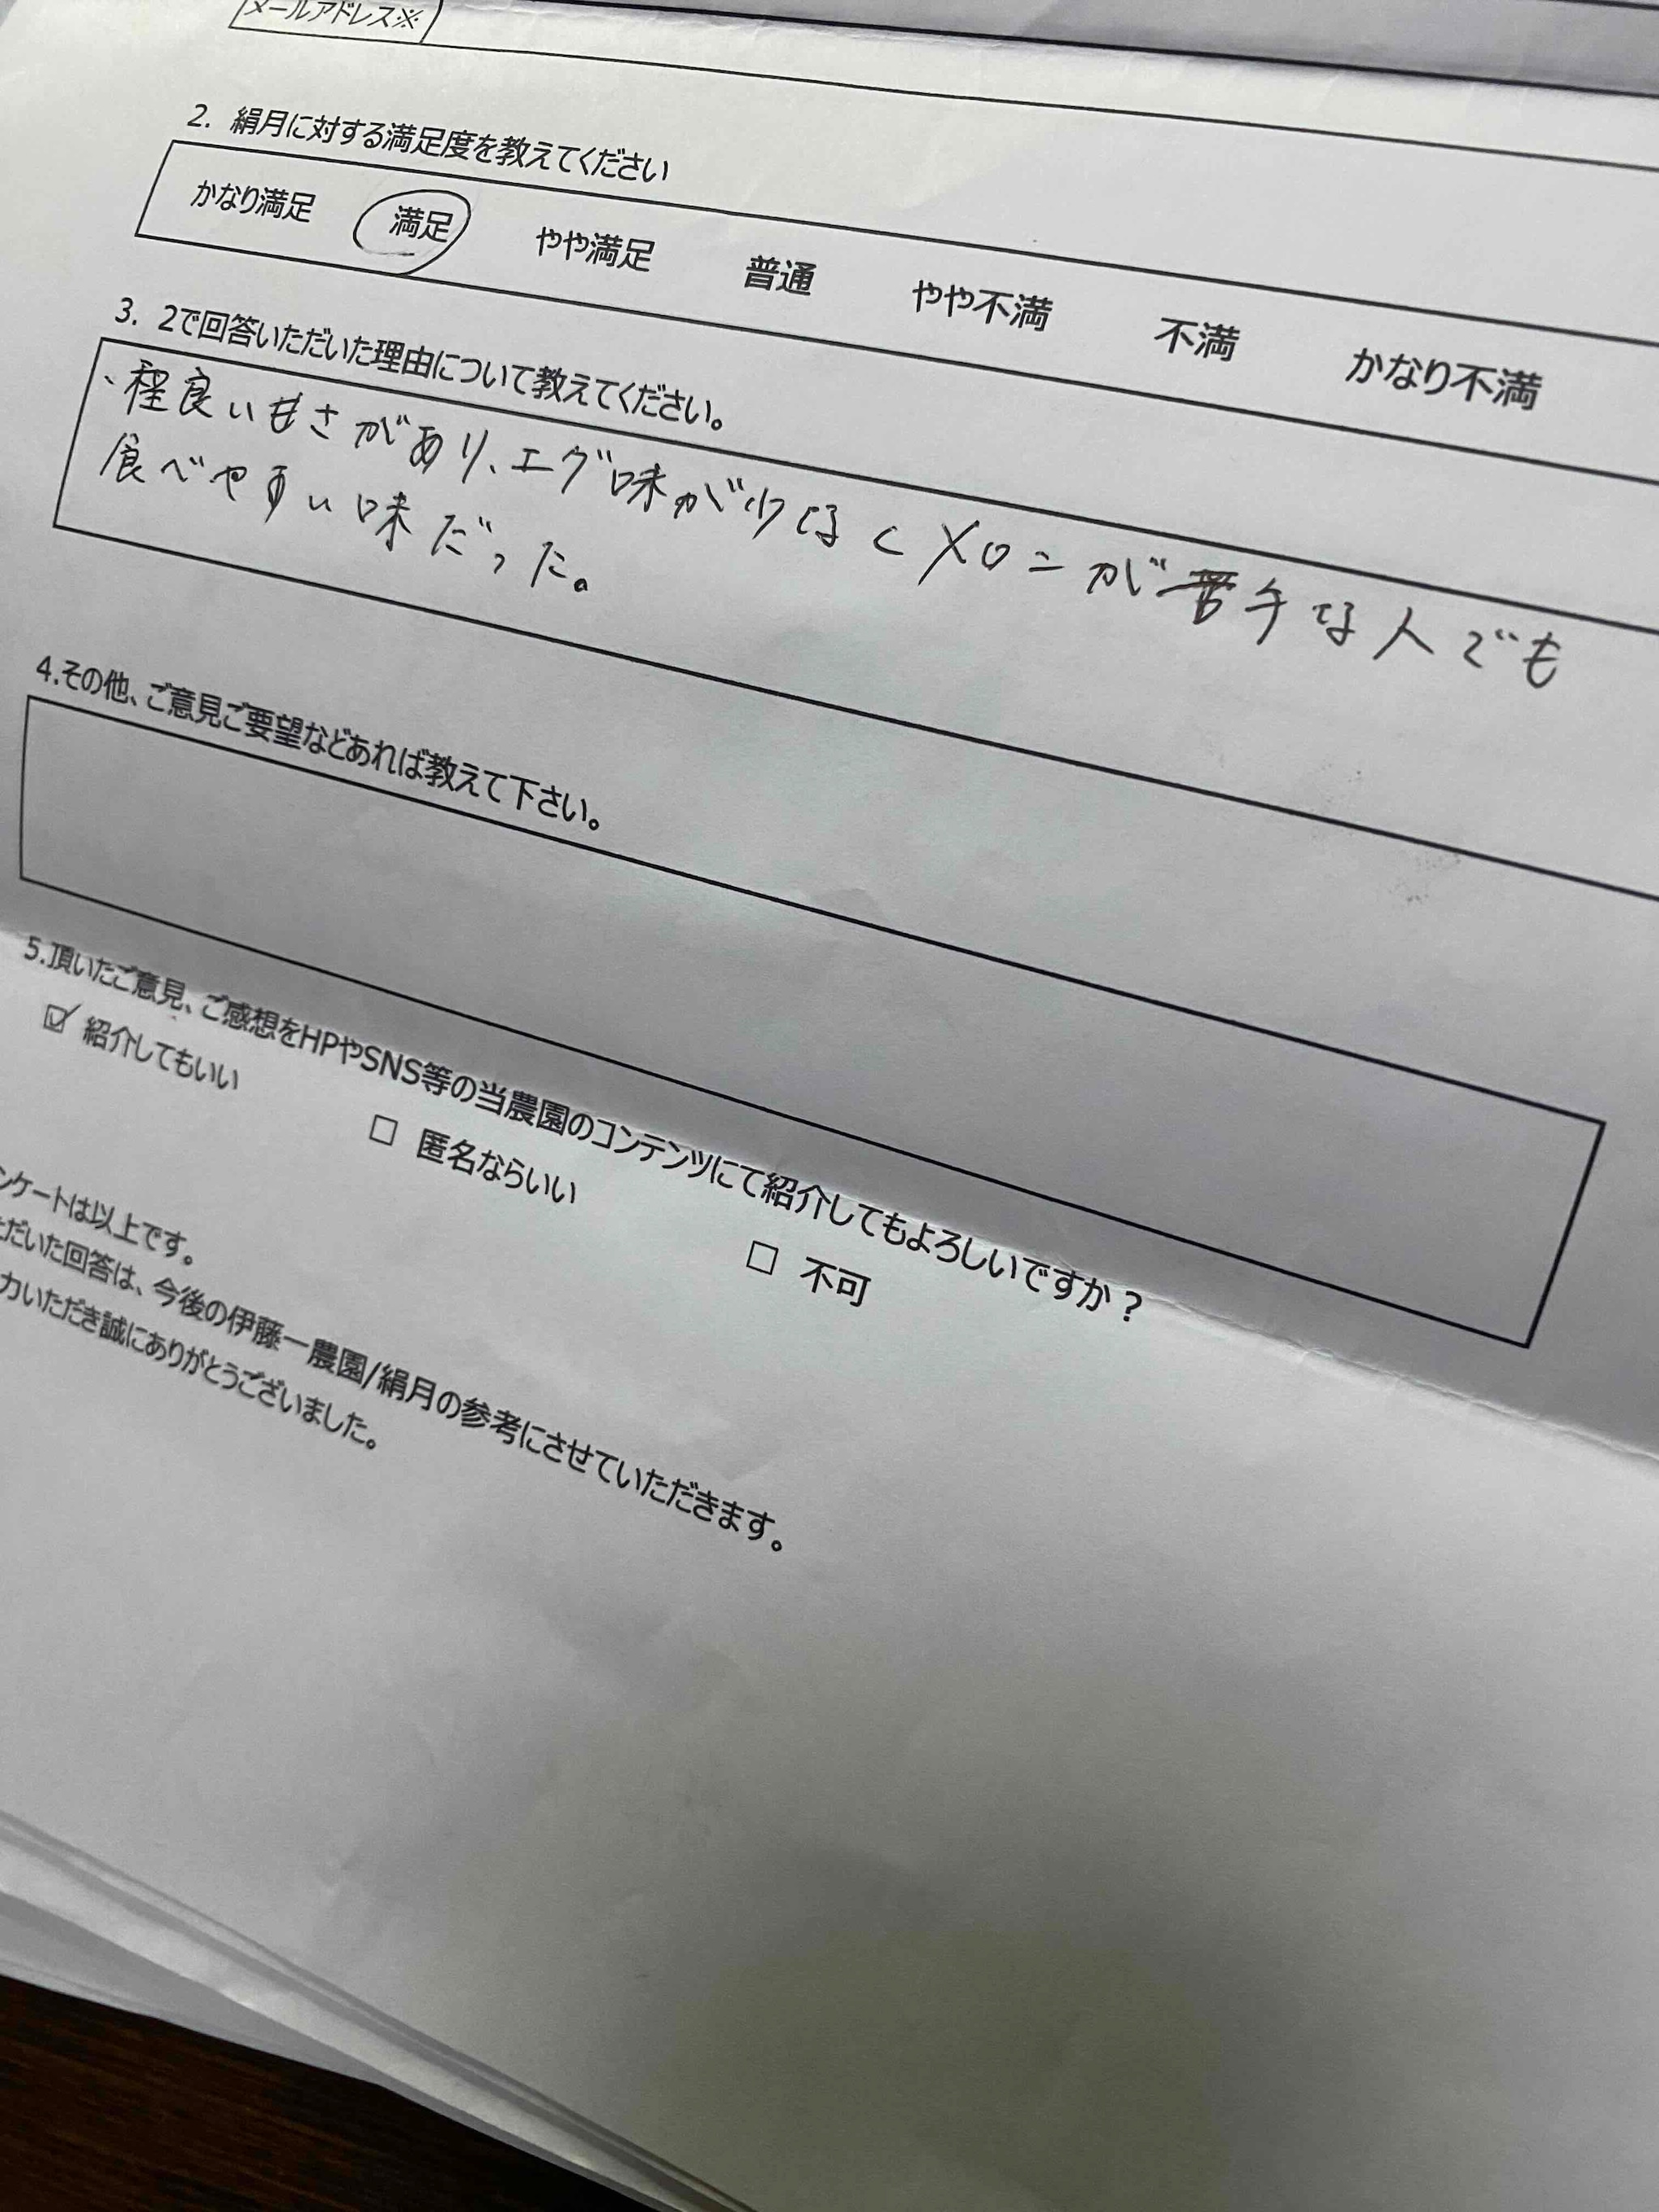 メールアドレス※
2. 絹月に対する満足度を教えてください
かなり満足 満足 やや満足 普通 やや不満 不満 かなり不満
3. 2で回答いただいた理由について教えてください。
・程良い甘さがあり、エグ味が少なくメロンが苦手な人でも
食べやすい味だった。
4.その他、ご意見ご要望などあれば教えて下さい。
5.頂いたご意見、ご感想をHPやSNS等の当農園のコンテンツにて紹介してもよろしいですか？
☑ 紹介してもいい □ 匿名ならいい □ 不可
ンケートは以上です。
ただいた回答は、今後の伊藤一農園/絹月の参考にさせていただきます。
力いただき誠にありがとうございました。